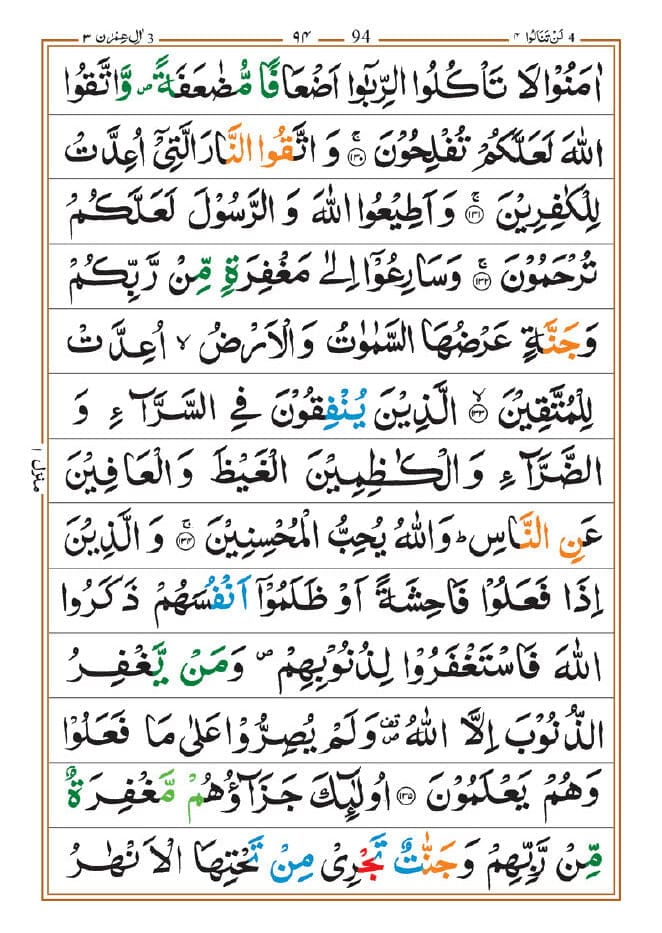 4 لَنْ تَنَالُوا ۴ 94 ۹۴ 3 اٰلِ عِمْرٰن ۳
اٰمَنُوْا لَا تَاْكُلُوا الرِّبٰٓوا اَضْعَافًا مُّضٰعَفَةً ۪ وَّاتَّقُوا
اللّٰهَ لَعَلَّكُمْ تُفْلِحُوْنَ ۚ ۱۳۰ وَ اتَّقُوا النَّارَ الَّتِىْۤ اُعِدَّتْ
لِلْكٰفِرِيْنَ ۚ ۱۳۱ وَاَطِيْعُوا اللّٰهَ وَ الرَّسُوْلَ لَعَلَّكُمْ
تُرْحَمُوْنَ ۚ ۱۳۲ وَسَارِعُوْۤا اِلٰى مَغْفِرَةٍ مِّنْ رَّبِّكُمْ
وَجَنَّةٍ عَرْضُهَا السَّمٰوٰتُ وَالْاَرْضُ ۙ اُعِدَّتْ
لِلْمُتَّقِيْنَ ۙ ۱۳۳ الَّذِيْنَ يُنْفِقُوْنَ فِى السَّرَّآءِ وَ
الضَّرَّآءِ وَالْكٰظِمِيْنَ الْغَيْظَ وَالْعَافِيْنَ
منزل ۱
عَنِ النَّاسِ ؕ وَاللّٰهُ يُحِبُّ الْمُحْسِنِيْنَ ۚ ۱۳۴ وَ الَّذِيْنَ
اِذَا فَعَلُوْا فَاحِشَةً اَوْ ظَلَمُوْۤا اَنْفُسَهُمْ ذَكَرُوا
اللّٰهَ فَاسْتَغْفَرُوْا لِذُنُوْبِهِمْ ۪ وَمَنْ يَّغْفِرُ
الذُّنُوْبَ اِلَّا اللّٰهُ ۪ قف وَلَمْ يُصِرُّوْا عَلٰى مَا فَعَلُوْا
وَهُمْ يَعْلَمُوْنَ ۱۳۵ اُولٰٓئِكَ جَزَآؤُهُمْ مَّغْفِرَةٌ
مِّنْ رَّبِّهِمْ وَجَنّٰتٌ تَجْرِىْ مِنْ تَحْتِهَا الْاَنْهٰرُ